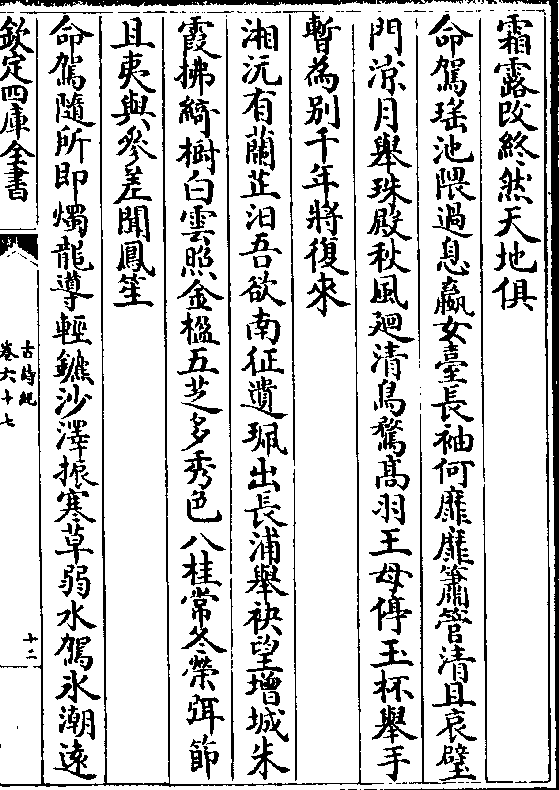 霜露改終然天地俱
命駕瑤池隈過息嬴女臺長袖何靡靡簫管清且哀璧
門涼月舉珠殿秋風廻清鳥騖髙羽王母停玉杯舉手
暫為别千年將復來
湘沅有蘭芷汨吾欲南征遺珮出長浦舉袂望增城朱
霞拂綺樹白雲照金楹五芝多秀色八桂常冬榮弭節
且夷與參差聞鳳笙
命駕隨所即燭龍導輕鑣沙澤振寒草弱水駕冰潮遠
欽定四庫全書
古詩紀
卷六十七
十二